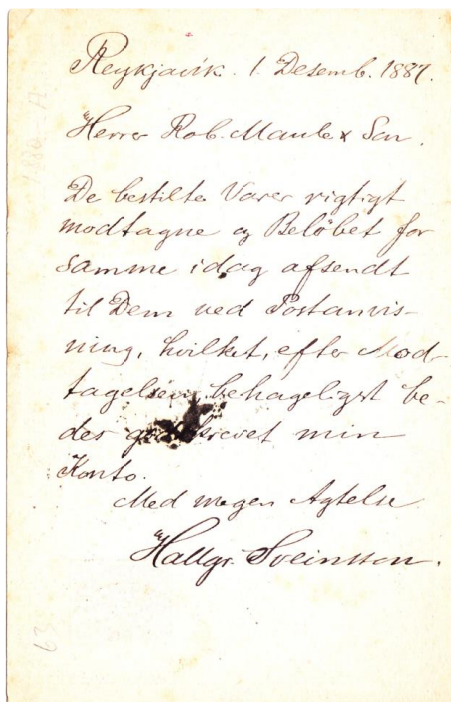 Reykjavik. 1. Desemb. 1887.
Herrer Rob. Maule & Son.
De bestilte Varer rigtigt
modtagne og Beløbet for
samme idag afsendt
til Dem ved Postanvis-
ning, hvilket, efter Mod-
tagelsen, behageligst be-
des min
Konto.
Med megen Agtelse
Hallgr. Sveinsson.